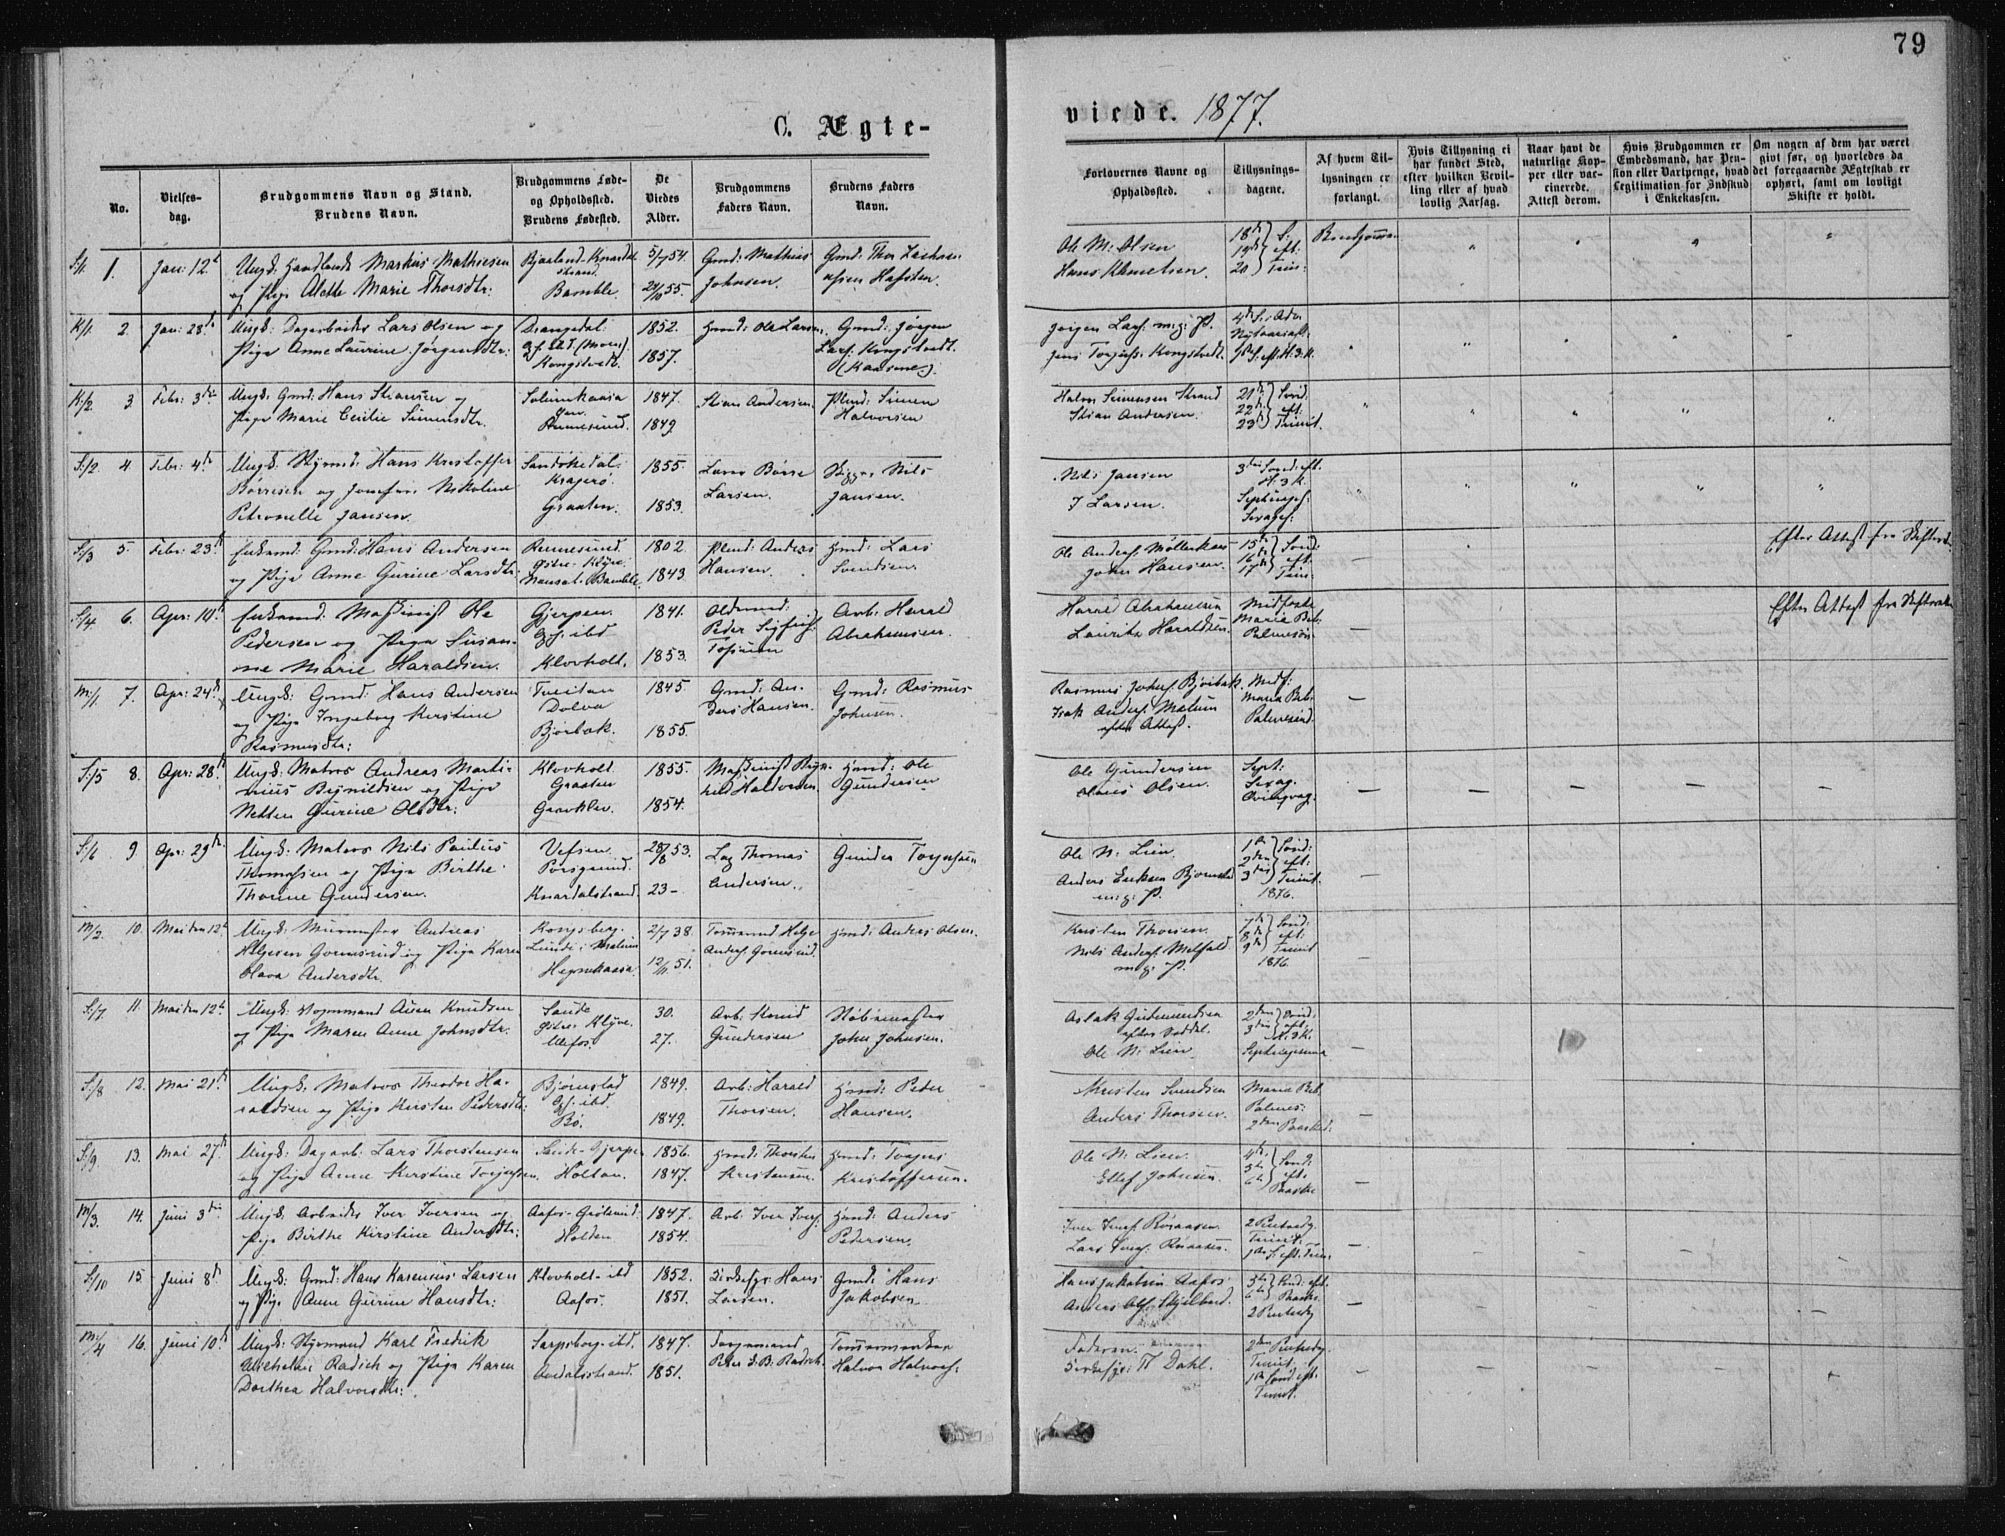 79
C. Ægte-
viede. 1877.
No.
Vielses-
dag.
Brudgommens Navn og Stand.
Brudens Navn.
Brudgommens Føde-
og Opholdssted.
Brudens Fødested.
De
Viedes
Alder.
Brudgommens
Faders Navn.
Brudens Faders
Navn.
Forlovernes Navne og
Opholdssted.
Tillysnings-
dagene.
Af hvem Til-
lysningen er
forlangt.
Hvis Tillysning ei
har fundet Sted,
efter hvilken Bevil-
ling eller af hvad
lovlig Aarsag.
Naar havt de
naturlige Kop-
per eller vac-
cinerede.
Attest derom.
Hvis Brudgommen er
Embedsmand, har Pen-
sion eller Vartpenge, hvad
Legitimation for Indskud
i Enkekassen.
Om nogen af dem har været
givt før, og hvorledes da
det foregaaende Ægteskab er
ophørt, samt om lovligt
Skifte er holdt.
S:/1. 1. Jan: 12t Ungk: Handlende Markus Mathiesen
og Pige Alette Marie Thorsdtr:
Strand
Bamble.
5/7 54.
24/10 55.
Gmd: Mathias
Johnsen.
Gmd: Thor
Hafsten.
Ole M: Olsen
Hans Klemetsen.
18de S:
19de eft:
20 Trin:
K/1. 2 Jan: 28de Ungk: Dagarbeider Lars Olsen og
Pige Anne Laurine Jørgensdtr:
Drangedal
Kongstvedt.
1852.
1857.
Hmd: Ole Larsen.
Gmd: Jørgen
Lars: Kongstvedt.
(Kaasene).
Jørgen Lars: m: g: P.
Jens Torjus: Kongstvedt.
K:/2. 3. Febr: 3die Ungk: Gmd: Hans Stiansen og
Pige Marie Cecilie Simensdtr.
Rennesund.
1847.
1849
Stian Andersen.
Plmd: Simen
Halvorsen
Halvor Simensen Strand
Stian Andersen.
21de Sønd.
22de eft.
23de Trinit.
S:/2. 4 Febr: 4de Ungk: Styrmd: Hans Kristoffer
Børresen og Jomfru Nikoline
Petronelle Jansen.
Sandøkedal.
Kragerø.
Graaten.
1855.
1853.
Lars Børre
Larsen.
Nils
Jansen.
Nils Jansen
J Larsen.
3die Sønd: eft.
H. 3 K.
Septuages:
Sexages:
S:/3 5. Febr: 23de Enkemd: Gmd: Hans Andersen
og Pige Anne Gurine Larsdtr:
Rennesund.
Østre-Klyve
Bamble.
1802.
1843.
Plmd: Anders
Hansen.
Hmd: Lars
Svendsen.
Ole Anders: Møllerkaas
John Hansen.
15de Sønd:
16de eft:
17de Trin:
Efter Attest fra Skifteret.
S:/4. 6. Apr: 10de Enkemd: Maskinist Ole
Pedersen og Pige Susan-
ne Marie Haraldsen.
Gjerpen.
Gjf: ibd
Klovholt.
1841.
1853.
Oldmand:
Peder
Arb: Harald
Abrahamsen.
Harald Abrahamsen
Lauritz Haraldsen.
Midfaste
Marie Beb:
Palmesøn:
Efter Attest fra Skifteret
M:/1. 7. Apr: 24de Ungk: Gmd: Hans Andersen
og Pige Ingeborg Kirstine
Rasmusdtr:
Tveitan
Dolva
Bjørbak.
1845.
1855.
Gmd: An-
ders Hansen.
Gmd: Rasmus
Johnsen.
Rasmus Johns: Bjørbak.
Isak Anders: Mælum
efter Attest.
Midf:
Maria Beb:
Palmesønd.
S:/5 8. Apr: 28de Ungk: Matros Andreas Marti-
nius Brynildsen og Pige
Netten Gurine Olsdtr:
Klovholt
Graaten
Gravklev.
1855.
1854.
Maskinist Bryn-
hild Halvorsen.
Hmd: Ole
Gundersen
Ole Gundersen
Olaus Olsen.
Sept:
Sexag.
Qvinqvag:
S:/6 9 Apr: 29de Ungk: Matros Nils Paulus
Thomassen og Pige Berthe
Thorine Gundersen.
Vefsen.
Porsgrund.
Knardalstrand.
28/8 53.
23-
Thomas
Andersen.
Gunder Torjussen
Ole N: Lien.
Anders Eriksen Bjørnstad
m: g: P.
1ste Sønd:
2den eft:
3die Trinit:
1876.
M:/2. 10. Mai den 12te Ungk: Murmester Andreas
Helgesen Gromsrud og Pige Karen
Olava Andersdtr.
Kongsberg.
Lunde i Mælum
2/7 38.
12/11 51.
Tømmermd Helge
Hmd: Anders Olsen.
Kristen Thorsen.
Nils Anders: Melfald
m: g: P.
7de Sønd:
8de eft:
9de Trinit
1876.
S:/7. 11. Mai den 12te Ungk: Vognmand Aven Knudsen
og Pige Maren Anne Johnsdtr.
Sande
Østre Klyve.
Ulefos.
30.
27.
Arb: Knud
Gundersen
John Johnsen.
Aslak Gudmundsen
Ole N: Lien.
2den Sønd:
3die eft.
H. 3 K.
Septuagesima
S:/8 12. Mai 21de Ungk: Matros Theodor Ha-
raldsen og Pige Kirsten Pedersdtr:
Bjørnstad
Gjf: ibd.
Bø.
1849.
1849.
Arb: Harald
Thorsen.
Hmd: Peder
Hansen.
Kristen Svendsen
Anders Thorsen.
Maria Beb.
Palmes:
2den Paaskd:
S:/9. 13. Mai 27de Ungk: Dagarb: Lars Thorstensen
og Pige Anne Kirstine Torjussen.
Gjerpen
Holtan.
1856.
1847.
Hmd: Thorsten
Kristensen.
Hmd: Torjus
Kristoffersen.
Ole N: Lien.
Ellef Johnsen.
4de Sønd:
5te eft.
6te Paaske
M/3. 14. Juni 3die Ungk. Arbeider Iver Iversen og
Pige Birthe Kirstine Andersdtr:
Holden
1847.
1854.
Arb: Iver Ivers:
Hmd: Anders
Pedersen.
2 Pintsedg.
Trinit:
1ste S. eft. Trin:
S:/10 15 Juni 8de Ungk: Gmd: Hans Karenius Larsen
og Pige Anne Gurine Hansdtr:
Klovholt-ibd
Aafos.
1852.
1851.
Kirkesgr: Hans
Larsen.
Gmd: Hans
Jakobsen
Hans Jakobsen Aafos
Anders Ols: Skjelbred.
5te Sønd: eft.
6te Paaske.
2 Pintsedg
M:/4 16. Juni 10de Ungk: Styrmand Karl Fredrik
Michelsen Radich og Pige Karen
Dorthea Halvorsdtr:
Sarpsborg-ibd.
1847.
1851.
Peter Radich
Tømmermerker
Halvor Halvors:
Faderen.
Kirkesgr: N Dahl.
2den Pintsedg.
Trinit:
1ste Sønd eft.
Trinit.